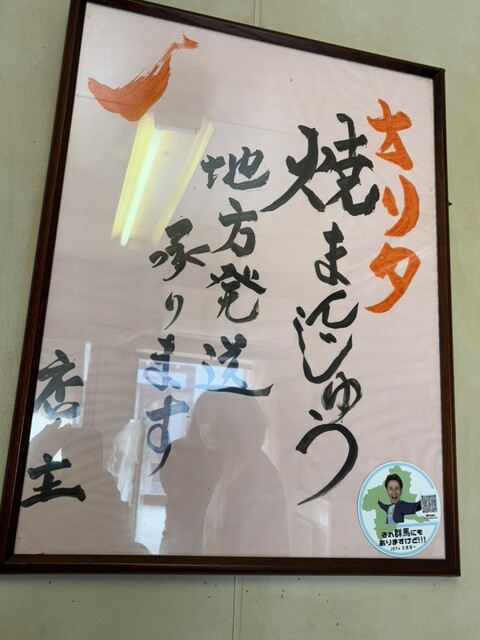 オリタ
焼まんじゅう
地方発送
承ります
店主
それ群馬にも
ありますけど!!!